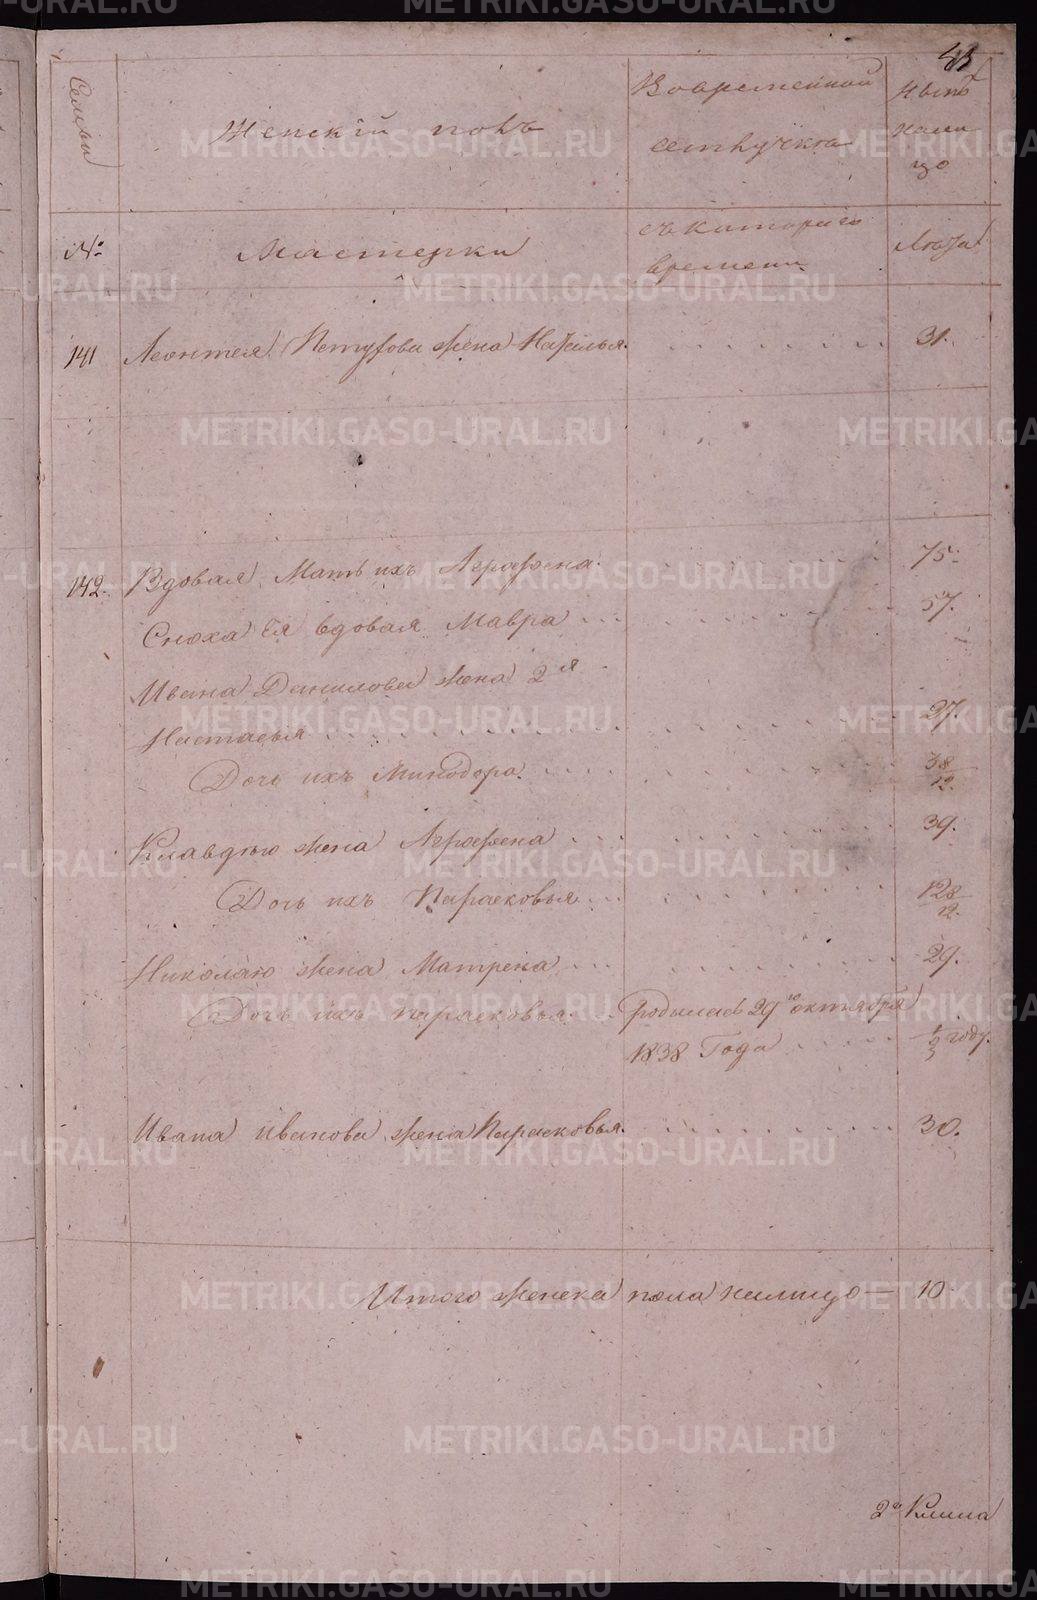 43
Семьи
Женскій полъ
Во временной отлучкѣ
Нынѣ на лицо
№
Мастерки
съ котораго времени
Лѣта
141 Леонтея Петухова жена Наталья 31.
142. Вдовая Мать ихъ Аграфена 75.
Сноха Ея вдовая Мавра 57.
Ивана Данилова жена 2я
Настасья 27.
Дочь ихъ Минодора 3 8/12.
Клавдѣю жена Аграфена 39.
Дочь ихъ Парасковья 12 8/12.
Николаю жена Матрена 29.
Дочь ихъ парасковья родилась 29го октября
1838 Года 1/3 году.
Ивана иванова жена Парасковья 30.
Итого женска пола налицо — 10
METRIKI.GASO-URAL.RU